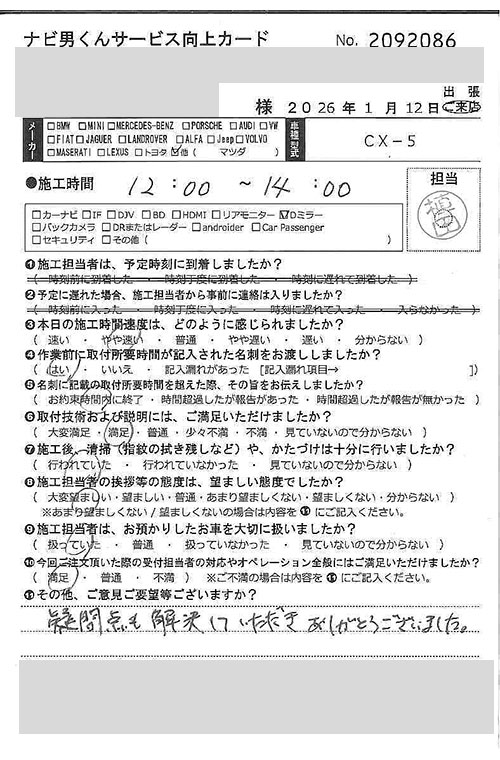 ナビ男くんサービス向上カード No. 2092086
様 2026年 1月 12日 出張 ご来店
メーカー □BMW □MINI □MERCEDES-BENZ □PORSCHE □AUDI □VW
□FIAT □JAGUER □LANDROVER □ALFA □Jeep □VOLVO
□MASERATI □LEXUS □トヨタ ☑他 ( マツダ )
車種型式 CX-5
●施工時間 12:00 ~ 14:00
担当
□カーナビ □IF □DJV □BD □HDMI □リアモニター ☑Dミラー
□バックカメラ □DRまたはレーダー □androider □Car Passenger
□セキュリティ □その他 ( )
❶施工担当者は、予定時刻に到着しましたか?
( 時刻前に到着した ・ 時刻丁度に到着した ・ 時刻に遅れて到着した )
❷予定に遅れた場合、施工担当者から事前に連絡は入りましたか?
( 時刻前に入った ・ 時刻丁度に入った ・ 時刻に遅れて入った ・ 入らなかった )
❸本日の施工時間速度は、どのように感じられましたか?
( 速い ・ やや速い ・ 普通 ・ やや遅い ・ 遅い ・ 分からない )
❹作業前に取付所要時間が記入された名刺をお渡ししましたか?
( はい ・ いいえ ・ 記入漏れがあった [記入漏れ項目→ ] )
❺名刺に記載の取付所要時間を超えた際、その旨をお伝えしましたか?
( お約束時間内に終了 ・ 時間超過したが報告があった ・ 時間超過したが報告が無かった )
❻取付技術および説明には、ご満足いただけましたか?
( 大変満足 ・ 満足 ・ 普通 ・ 少々不満 ・ 不満 ・ 見ていないので分からない )
❼施工後、清掃(指紋の拭き残しなど)や、かたづけは十分に行いましたか?
( 行われていた ・ 行われていなかった ・ 見ていないので分からない )
❽施工担当者の挨拶等の態度は、望ましい態度でしたか?
( 大変望ましい・望ましい・普通・あまり望ましくない・望ましくない・分からない )
※あまり望ましくない/望ましくないの場合は内容を⓫にご記入ください。
❾施工担当者は、お預かりしたお車を大切に扱いましたか?
( 扱っていた ・ 普通 ・ 扱っていなかった ・ 見ていないので分からない )
❿今回ご注文頂いた際の受付担当者の対応やオペレーション全般にはご満足いただけましたか?
( 満足 ・ 普通 ・ 不満 ) ※ご不満の場合は内容を⓫にご記入ください。
⓫その他、ご意見ご要望等ございますか?
疑問点も解決していただきありがとうございました。